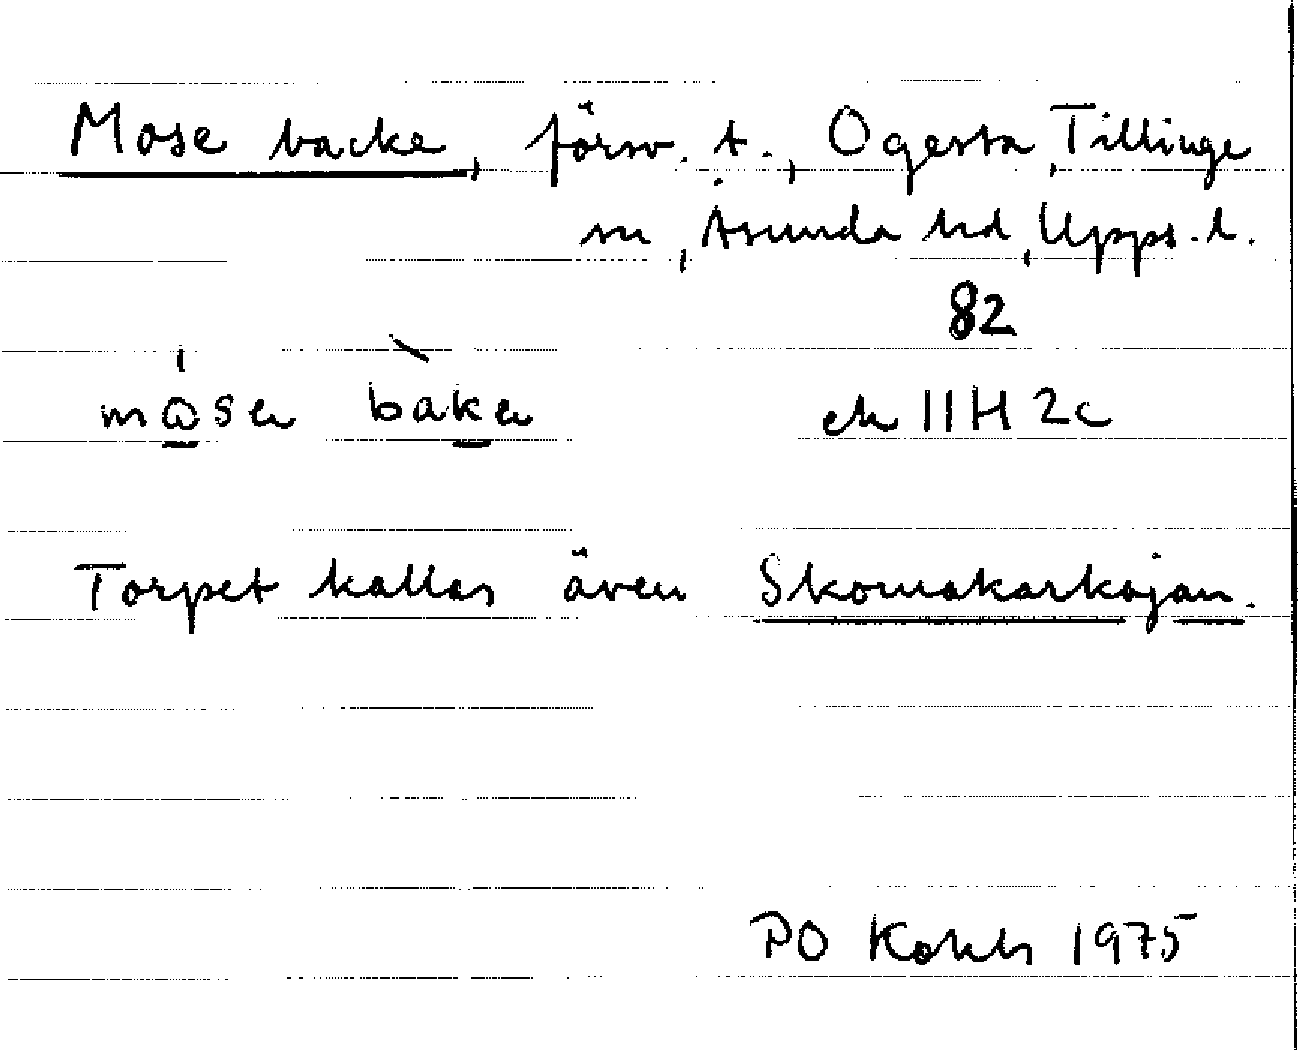 Mose backe, försv. t., Ogesta, Tillinge
sn, Åsunda hd, Upps. l.
82
ek 11H 2c
Torpet kallas även Skomakarkojan.
PO 1975